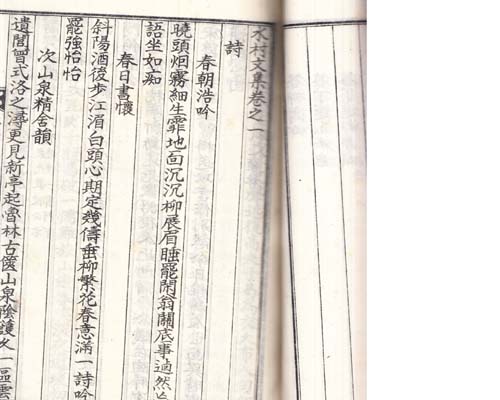 水村文集卷之一
詩
春朝浩吟
曉頭烟霧細生霏地面沉沉柳展眉睡罷閑翁關底事適然
語坐如痴
春日書懷
斜陽酒後步江湄白頭心期定幾儔垂柳繁花春意滿一詩吟
罷強怡怡
次山泉精舍韻
遺閭曾式洛之潯更見新亭起魯林古篋山泉陰護久一區雲